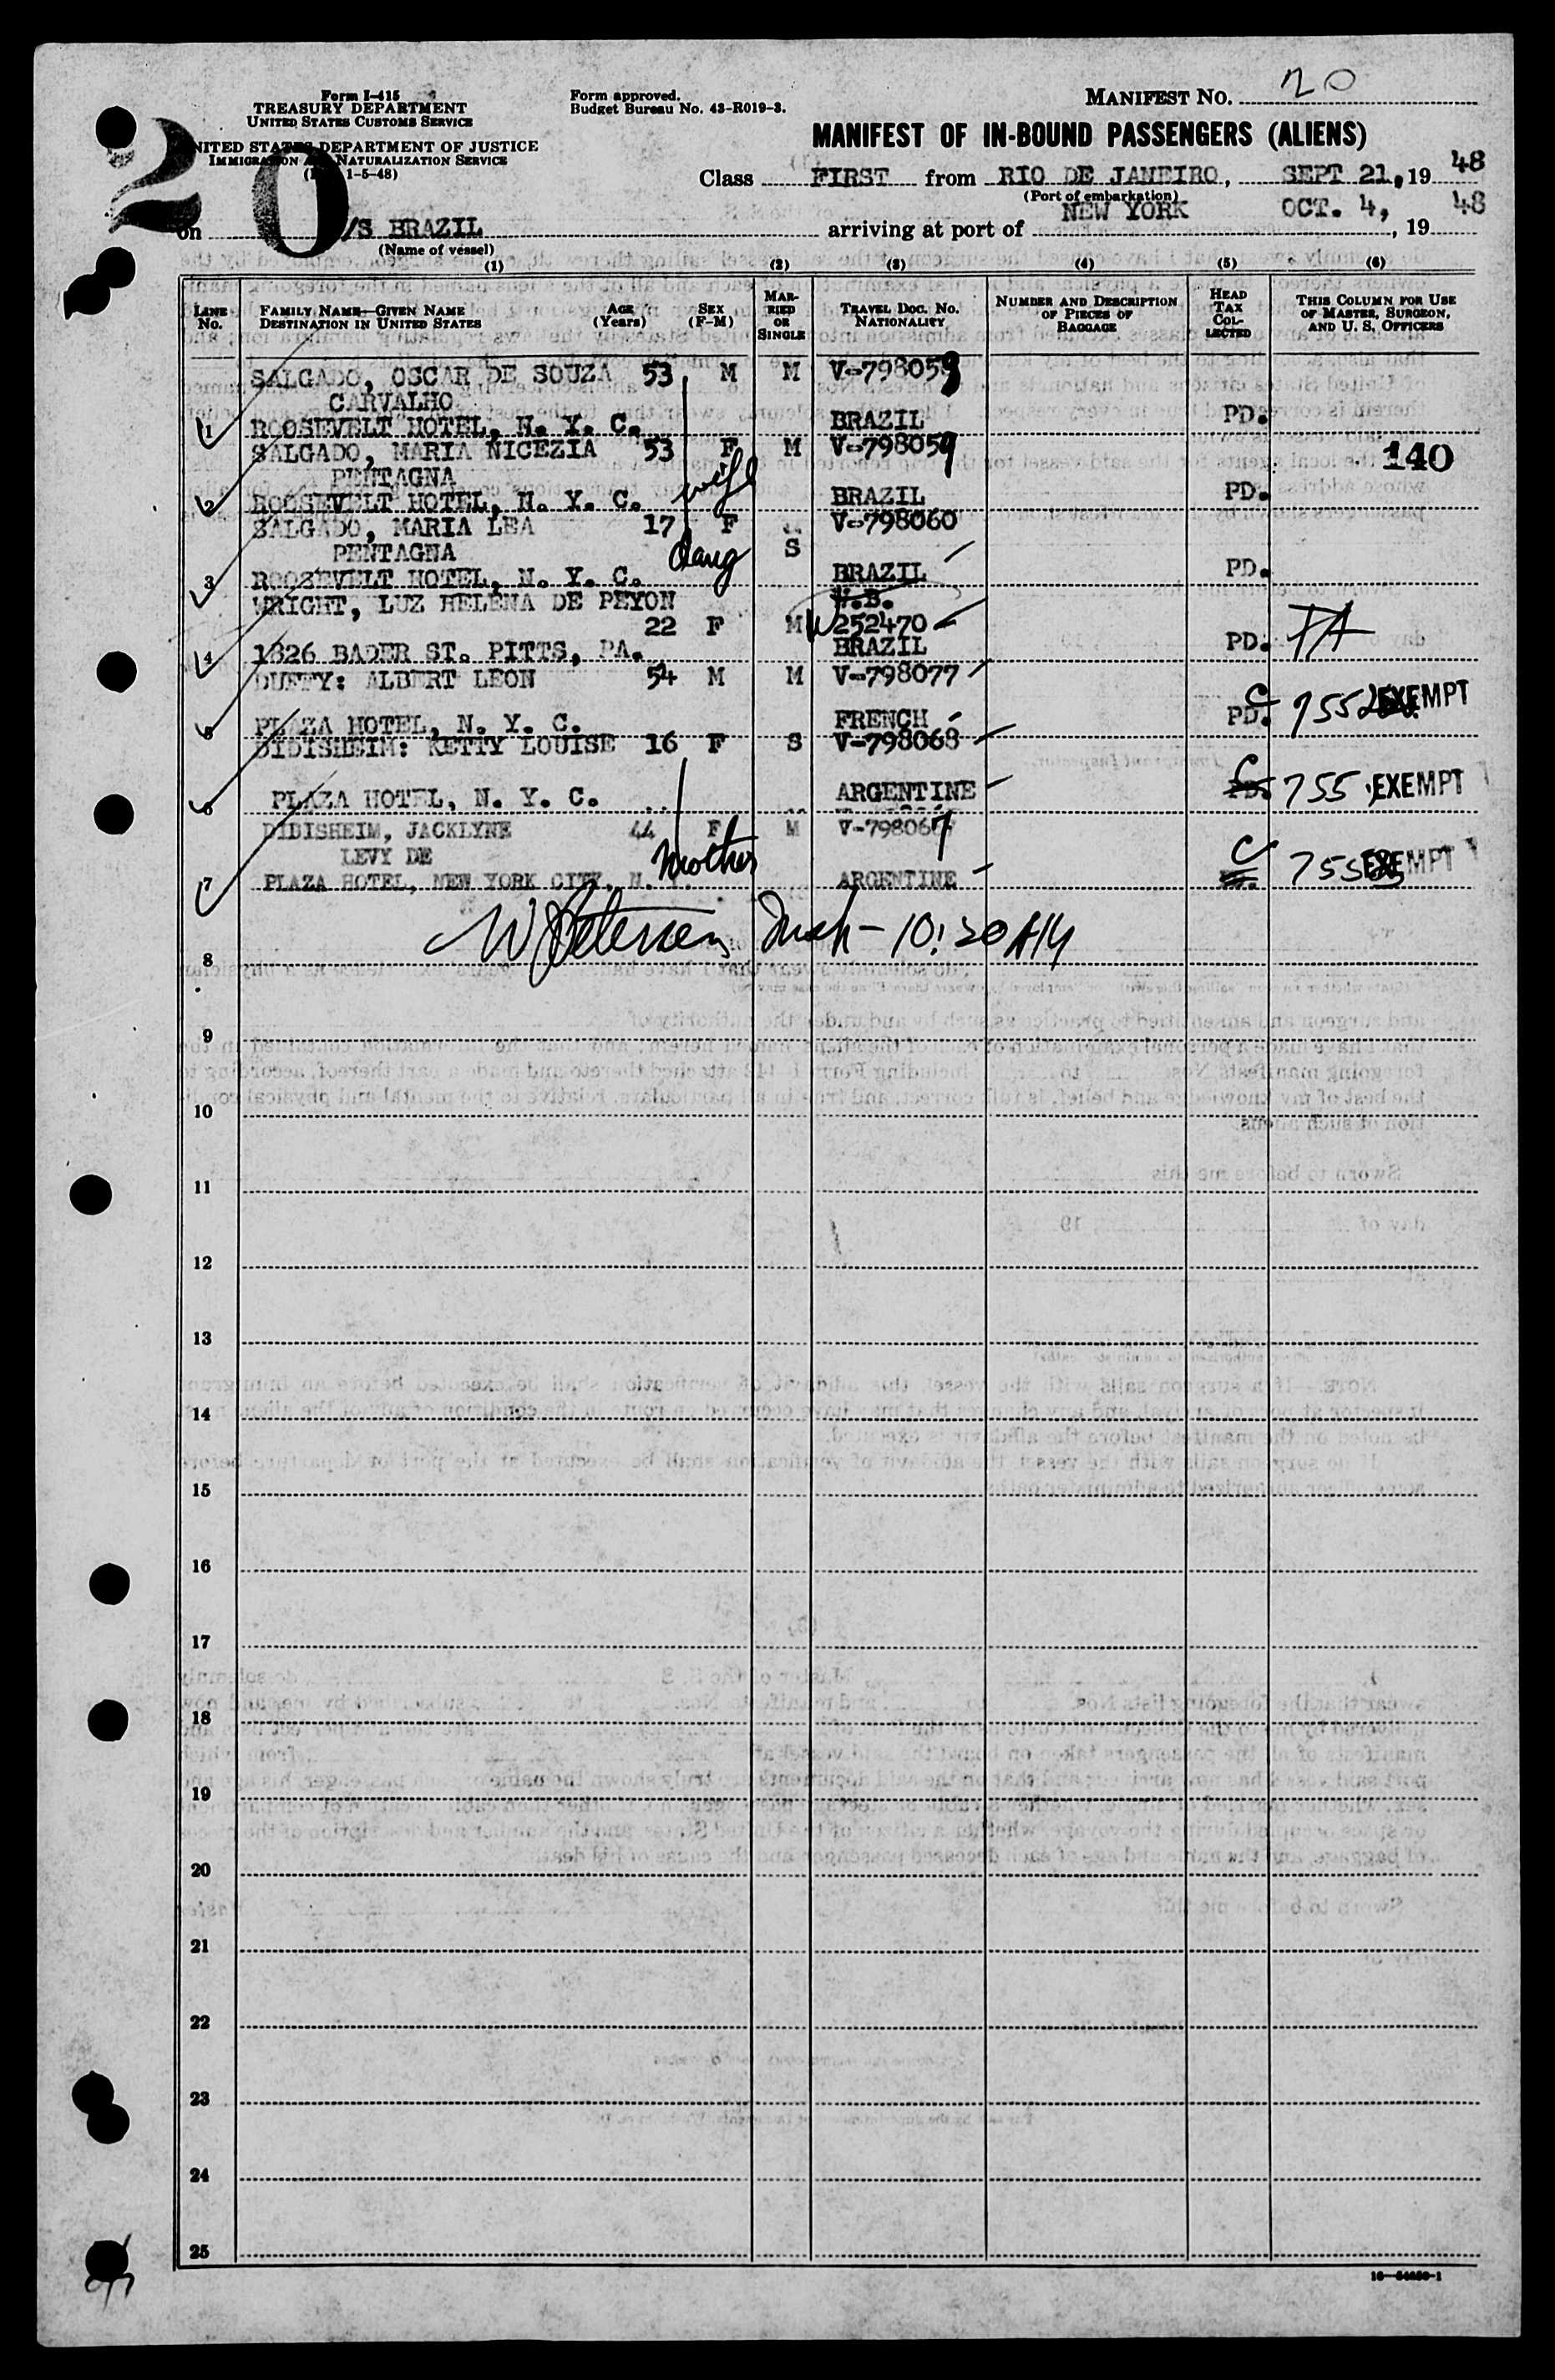 Form I-415
TREASURY DEPARTMENT
UNITED STATES CUSTOMS SERVICE
NITED STATES DEPARTMENT OF JUSTICE
IMMIGRATION NATURALIZATION SERVICE
1-5-48)
20
Form approved.
Budget Bureau No. 43-R019-3.
MANIFEST NO. 20
MANIFEST OF IN-BOUND PASSENGERS (ALIENS)
Class FIRST from RIO DE JANEIRO, SEPT 21, 19 48
(Port of embarkation)
on /S BRAZIL arriving at port of NEW YORK OCT. 4, 19 48
(Name of vessel)
(1) (2) (3) (4) (5) (6)
LINE No. FAMILY NAME—GIVEN NAME DESTINATION IN UNITED STATES AGE (Years) SEX (F-M) MARRIED OR SINGLE TRAVEL DOC. NO. NATIONALITY NUMBER AND DESCRIPTION OF PIECES OF BAGGAGE HEAD TAX COLLECTED THIS COLUMN FOR USE OF MASTER, SURGEON, AND U. S. OFFICERS
SALGADO, OSCAR DE SOUZA 53 M M V-798059
CARVALHO
1 ROOSEVELT HOTEL, N. Y. C. BRAZIL PD.
SALGADO, MARIA NICEZIA 53 F M V-798059 140
PENTAGNA wife
2 ROOSEVELT HOTEL, N. Y. C. BRAZIL PD.
SALGADO, MARIA LEA 17 F V-798060
PENTAGNA daug S
3 ROOSEVELT HOTEL, N. Y. C. BRAZIL PD.
WRIGHT, LUZ HELENA DE PEYON
22 F M W252470
4 1326 BADER ST. PITTS, PA. BRAZIL PD.
DUFTY: ALBERT LEON 54 M M V-798077
5 PLAZA HOTEL, N. Y. C. FRENCH PD. C EXEMPT
DIDISHEIM: KETTY LOUISE 16 F S V-798068
6 PLAZA HOTEL, N. Y. C. ARGENTINE PD. C 755 EXEMPT
DIDISHEIM, JACKLYNE 44 F M V-798067
LEVY DE mother
7 PLAZA HOTEL, NEW YORK CITY, N. Y. ARGENTINE C EXEMPT
10:20 AM
8
9
10
11
12
13
14
15
16
17
18
19
20
21
22
23
24
25